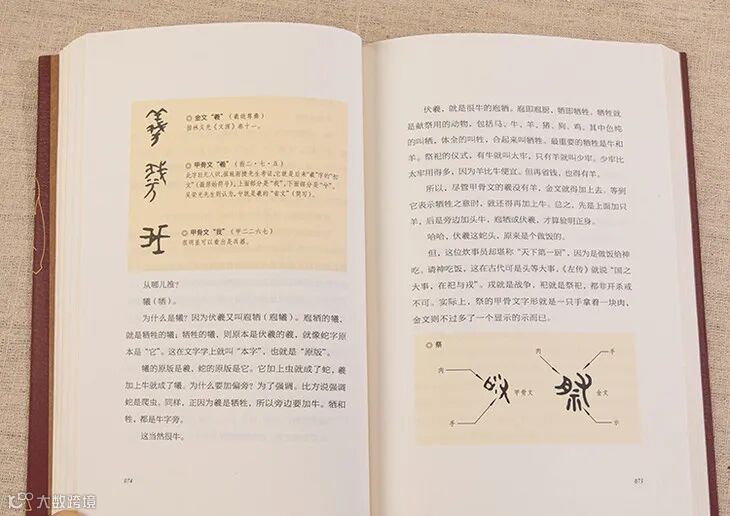 ◎ 金文“羲”（羲妣尊彝）
据林义光《文源》卷十一。
◎ 甲骨文“羲”（前二·七·五）
◎ 甲骨文“我”（甲二二六七）
很明显可以看出是兵器。
从哪儿推？
犧（牺）。
为什么是犧？因为伏羲又叫庖牺（庖犧）。庖牺的犧，
就是牺牲的犧；牺牲的犧，则原本是伏羲的羲，就像蛇字原
本是“它”。这在文字学上就叫“本字”，也就是“原版”。
犧的原版是羲，蛇的原版是它。它加上虫就成了蛇，羲
加上牛就成了犧。为什么要加偏旁？为了强调。比方说强调
蛇是爬虫。同样，正因为羲是牺牲，所以旁边要加牛。牺和
牲，都是牛字旁。
这当然很牛。
074
伏羲，就是很牛的庖牺。庖即庖厨，牺即牺牲。牺牲就
是献祭用的动物，包括马、牛、羊、猪、狗、鸡。其中色纯
的叫牺，体全的叫牲，合起来叫牺牲。最重要的牺牲是牛和
羊。祭祀的仪式，有牛就叫太牢，只有羊就叫少牢。少牢比
太牢用得多，因为羊比牛便宜。但再省钱，也得有羊。
所以，尽管甲骨文的羲没有羊，金文就得加上去。等到
它表示牺牲之意时，就还得再加上牛。总之，先是上面加只
羊，后是旁边加头牛，庖牺或伏羲，才算验明正身。
哈哈，伏羲这蛇头，原来是个做饭的。
但，这位炊事员却堪称“天下第一厨”，因为是做饭给神
吃。请神吃饭，这在古代可是头等大事，《左传》就说“国之
大事，在祀与戎”。戎就是战争，祀就是祭祀，都非开杀戒
不可。实际上，祭的甲骨文字形就是一只手拿着一块肉，
金文则不过多了一个显示的示而已。
◎ 祭
肉
手
甲骨文
金文
手
示
073
大数跨境